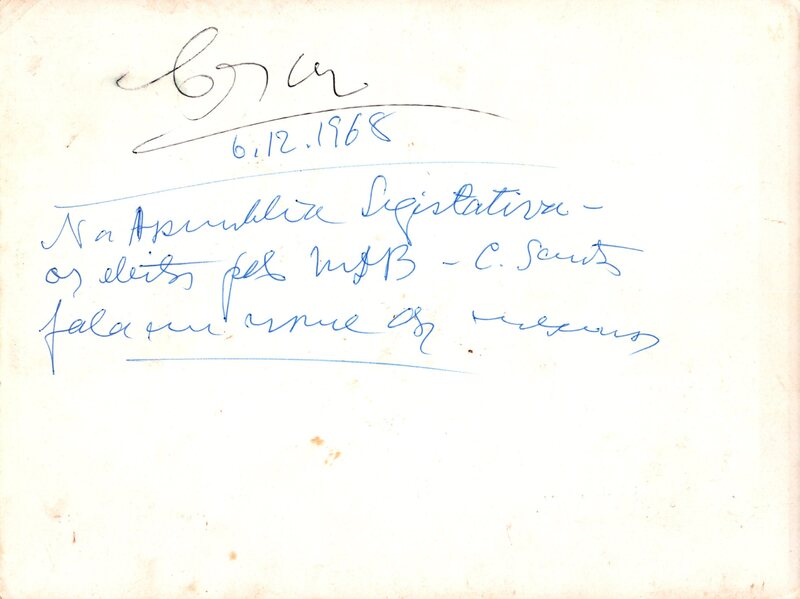 6.12.1968
Na Assembleia Legistativa -
os eleitos pelo MDB - C. Santos
fala em nome dos mesmos